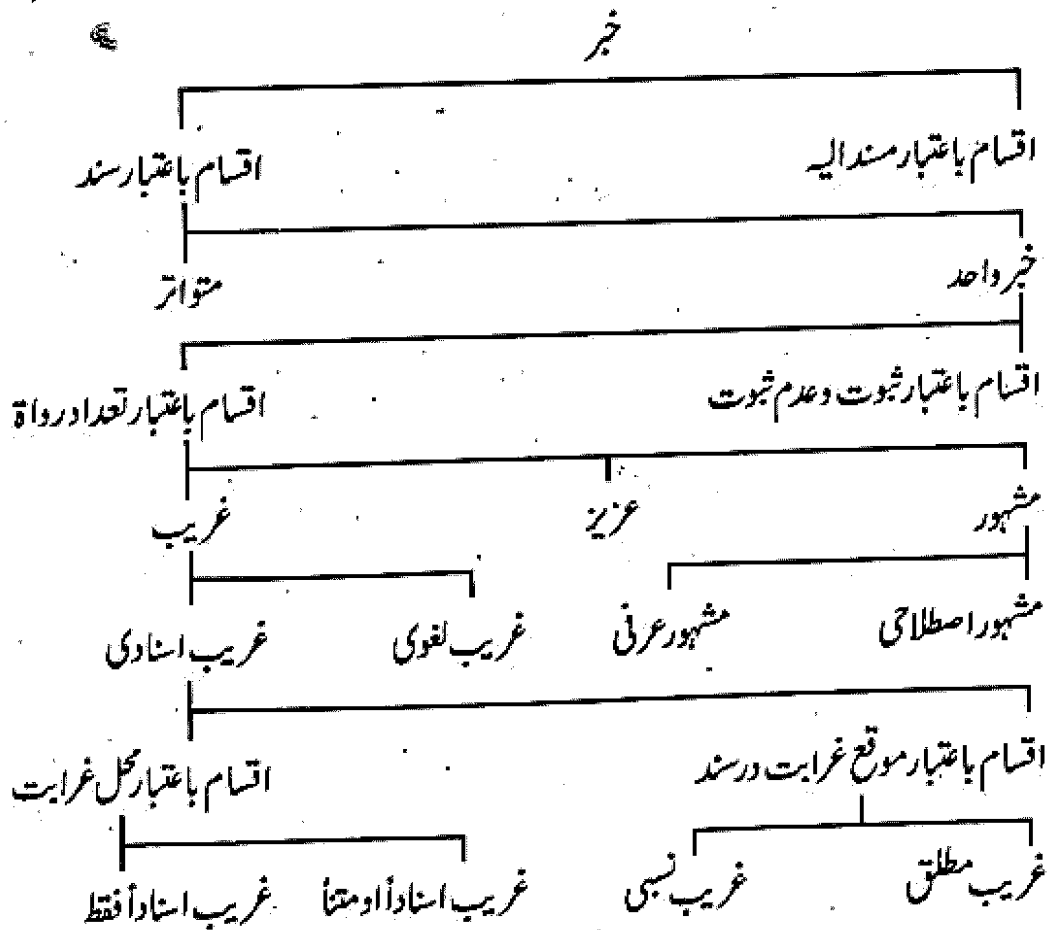 خبر
اقسام باعتبار مسند الیہ اقسام باعتبار سند
خبر واحد متواتر
اقسام باعتبار ثبوت و عدم ثبوت اقسام باعتبار تعداد رواۃ
مشہور عزیز غریب
مشہور اصطلاحی مشہور عرفی غریب لغوی غریب اسنادی
اقسام باعتبار موقع غرابت در سند اقسام باعتبار محل غرابت
غریب مطلق غریب نسبی غریب اسناداً اومتناً غریب اسناداً فقط